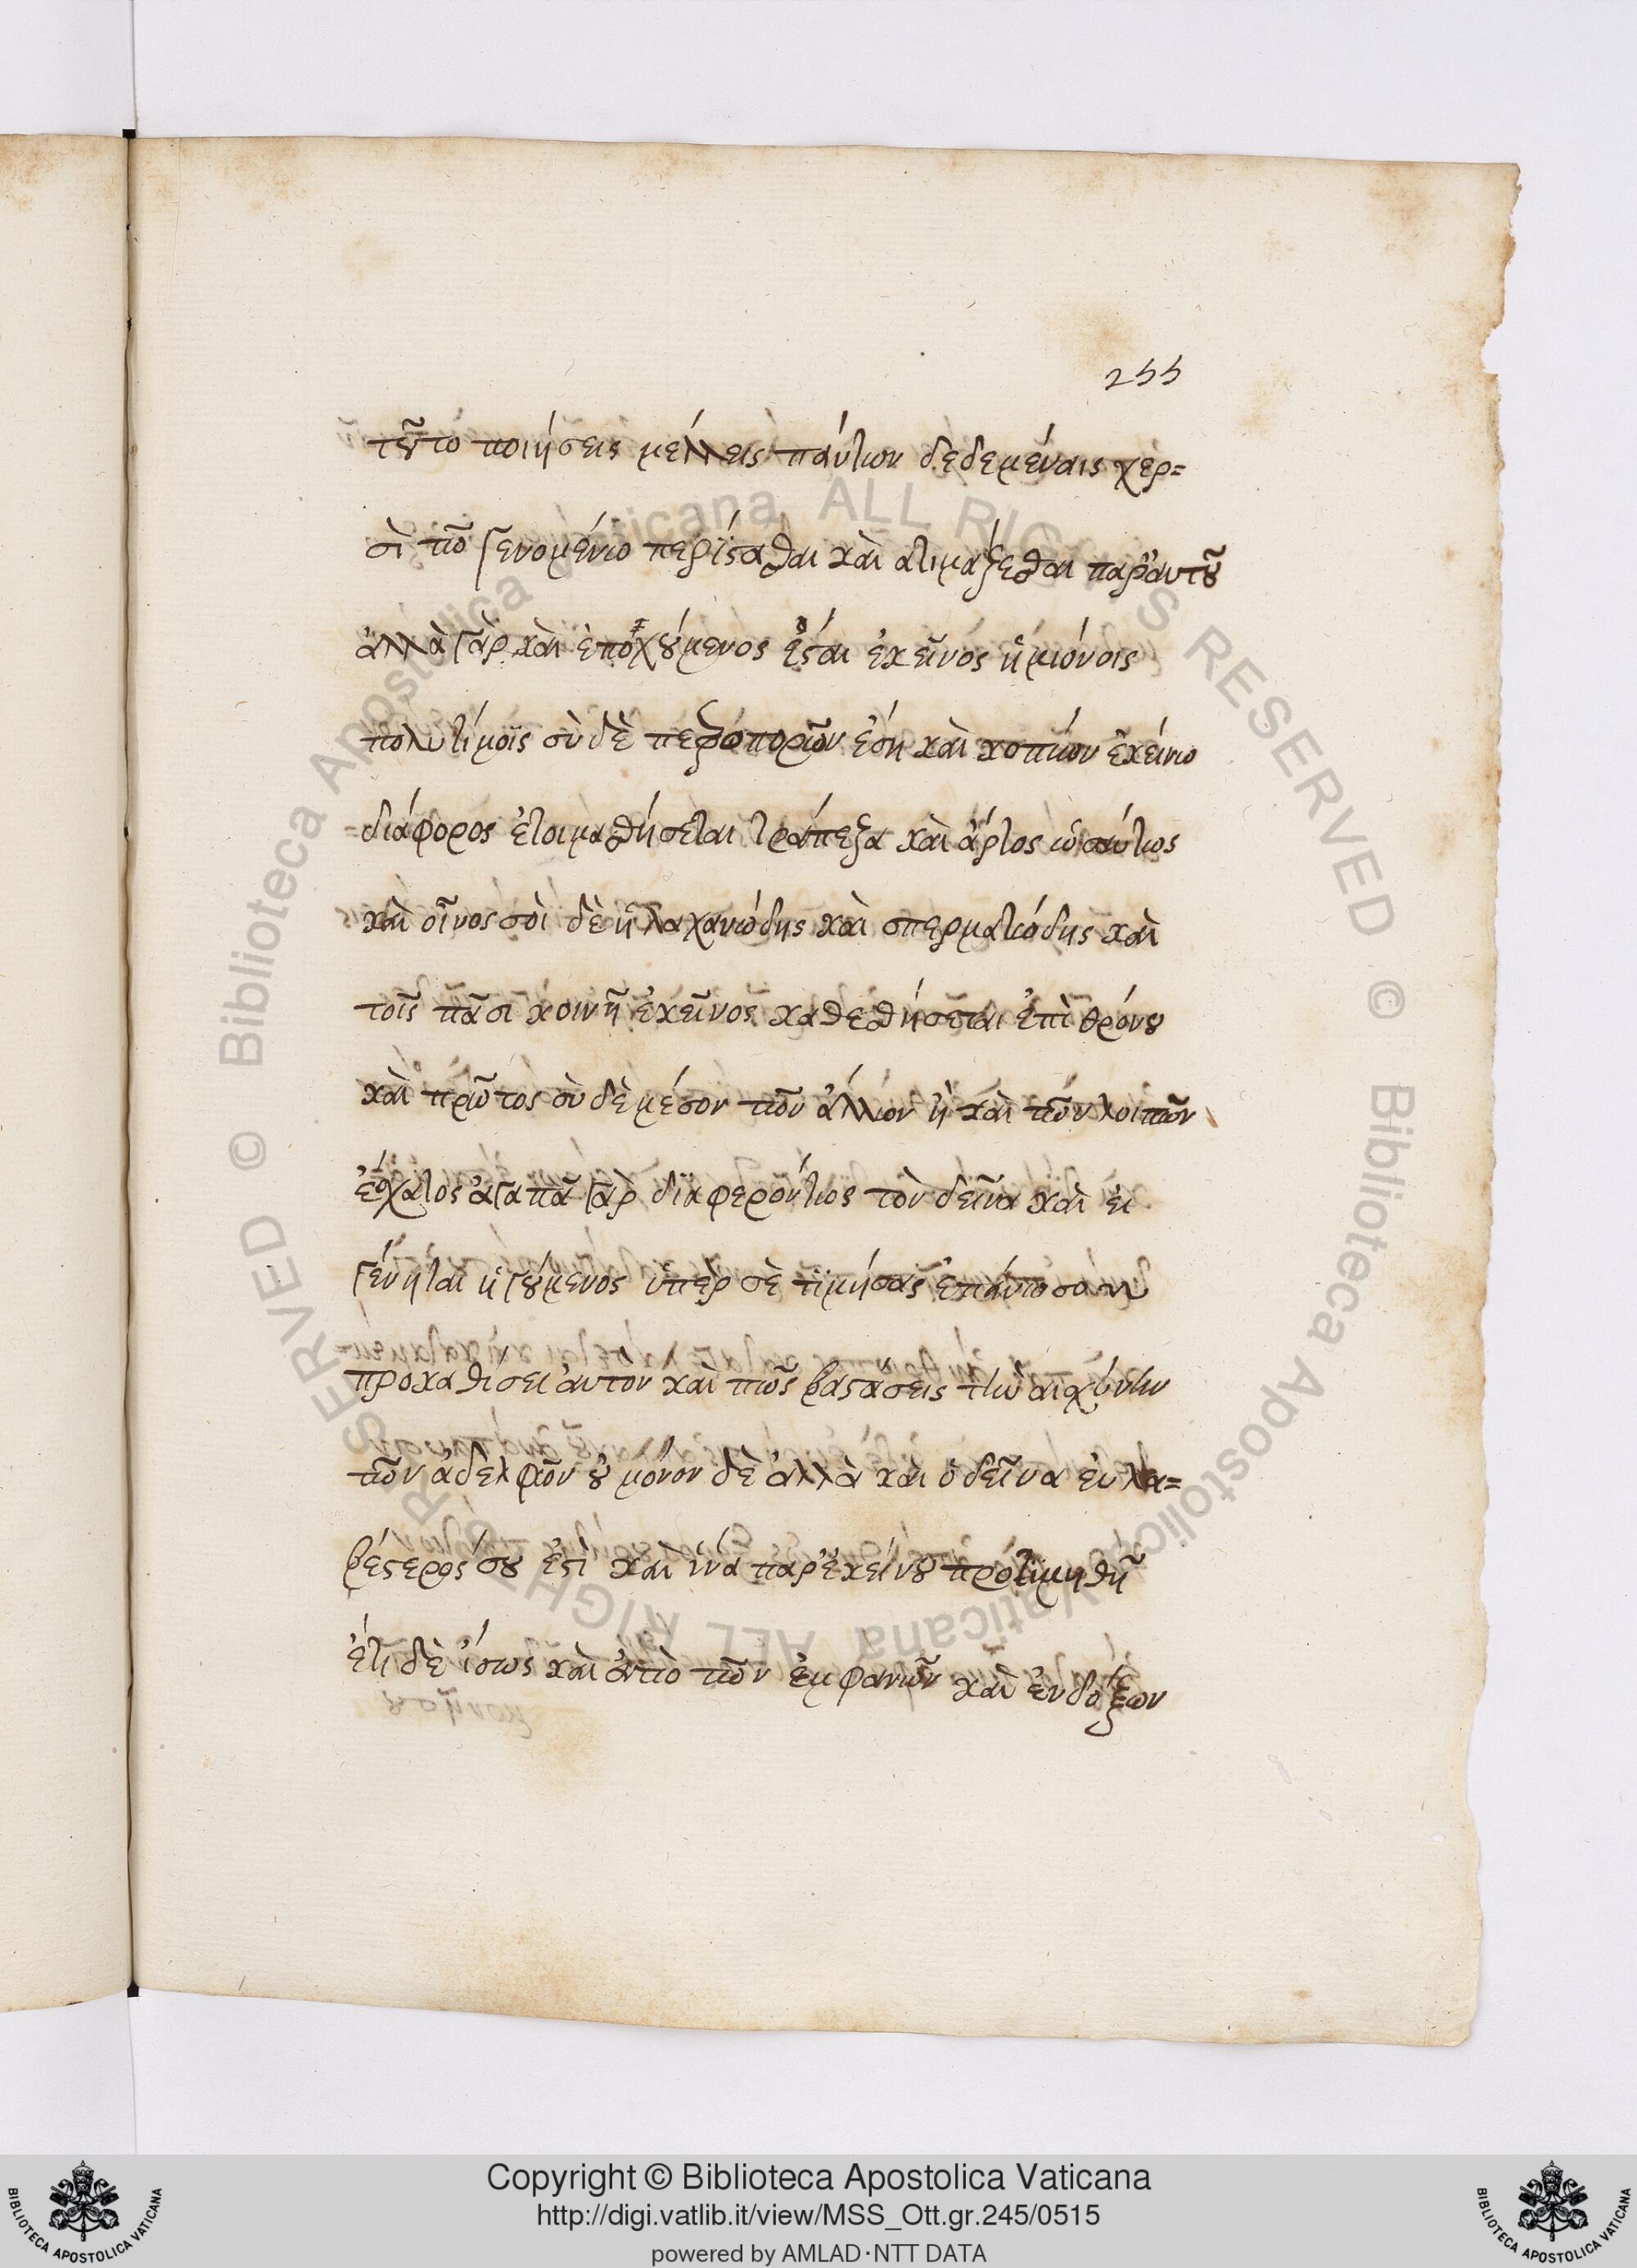 255
τοῦτο ποιήσεις μέλλεις πάντων δεδεμέναις χερ=
σὶ τῶ γενομένω περιίστασθαι καὶ ατιμάζεσθαι παρ' αυτοῦ
ἀλλὰ γὰρ καὶ ἐποχούμενος ἔσται ἐκεῖνος ἡμιόνοις
πολυτίμοις σὺ δὲ πεζοπορῶν ἔση καὶ κοπιῶν ἐκείνω
διάφορος ἑτοιμασθήσεται τράπεζα καὶ ἄρτος ὡσαύτως
καὶ οἶνος σοὶ δὲ ἡ λαχανώδης καὶ σπερματώδης καὶ
τοῖς πᾶσι κοινῆ ἐκεῖνος καθεσθήσεται ἐπὶ θρόνου
καὶ πρῶτος σὺ δὲ μέσον τῶν ἄλλων ἢ καὶ τῶν λοιπῶν
ἔσχατος ἀγαπᾶ γὰρ διαφερόντως τὸν δεῖνα καὶ εἰ
γένηται ἡγούμενος ὑπὲρ σὲ τιμήσας ἐπάνω σου
προκαθίσει αυτον καὶ πῶς βαστάσεις τὴν αἰσχύνην
τῶν ἀδελφῶν οὐ μόνον δὲ ἀλλὰ καὶ ὁ δεῖνα εὐλα=
βέστερος σου ἐστὶ καὶ ἵνα παρ' ἐκείνου προτιμηθῆ
ἔτι δὲ ἴσως καὶ ἀπὸ τῶν ἐμφανῶν καὶ ἐνδόξων
Copyright © Biblioteca Apostolica Vaticana
http://digi.vatlib.it/view/MSS_Ott.gr.245/0515
powered by AMLAD·NTT DATA
BIBLIOTECA APOSTOLICA VATICANA
BIBLIOTECA APOSTOLICA VATICANA
© Biblioteca Apostolica Vaticana ALL RIGHTS RESERVED
© Biblioteca Apostolica Vaticana ALL RIGHTS RESERVED